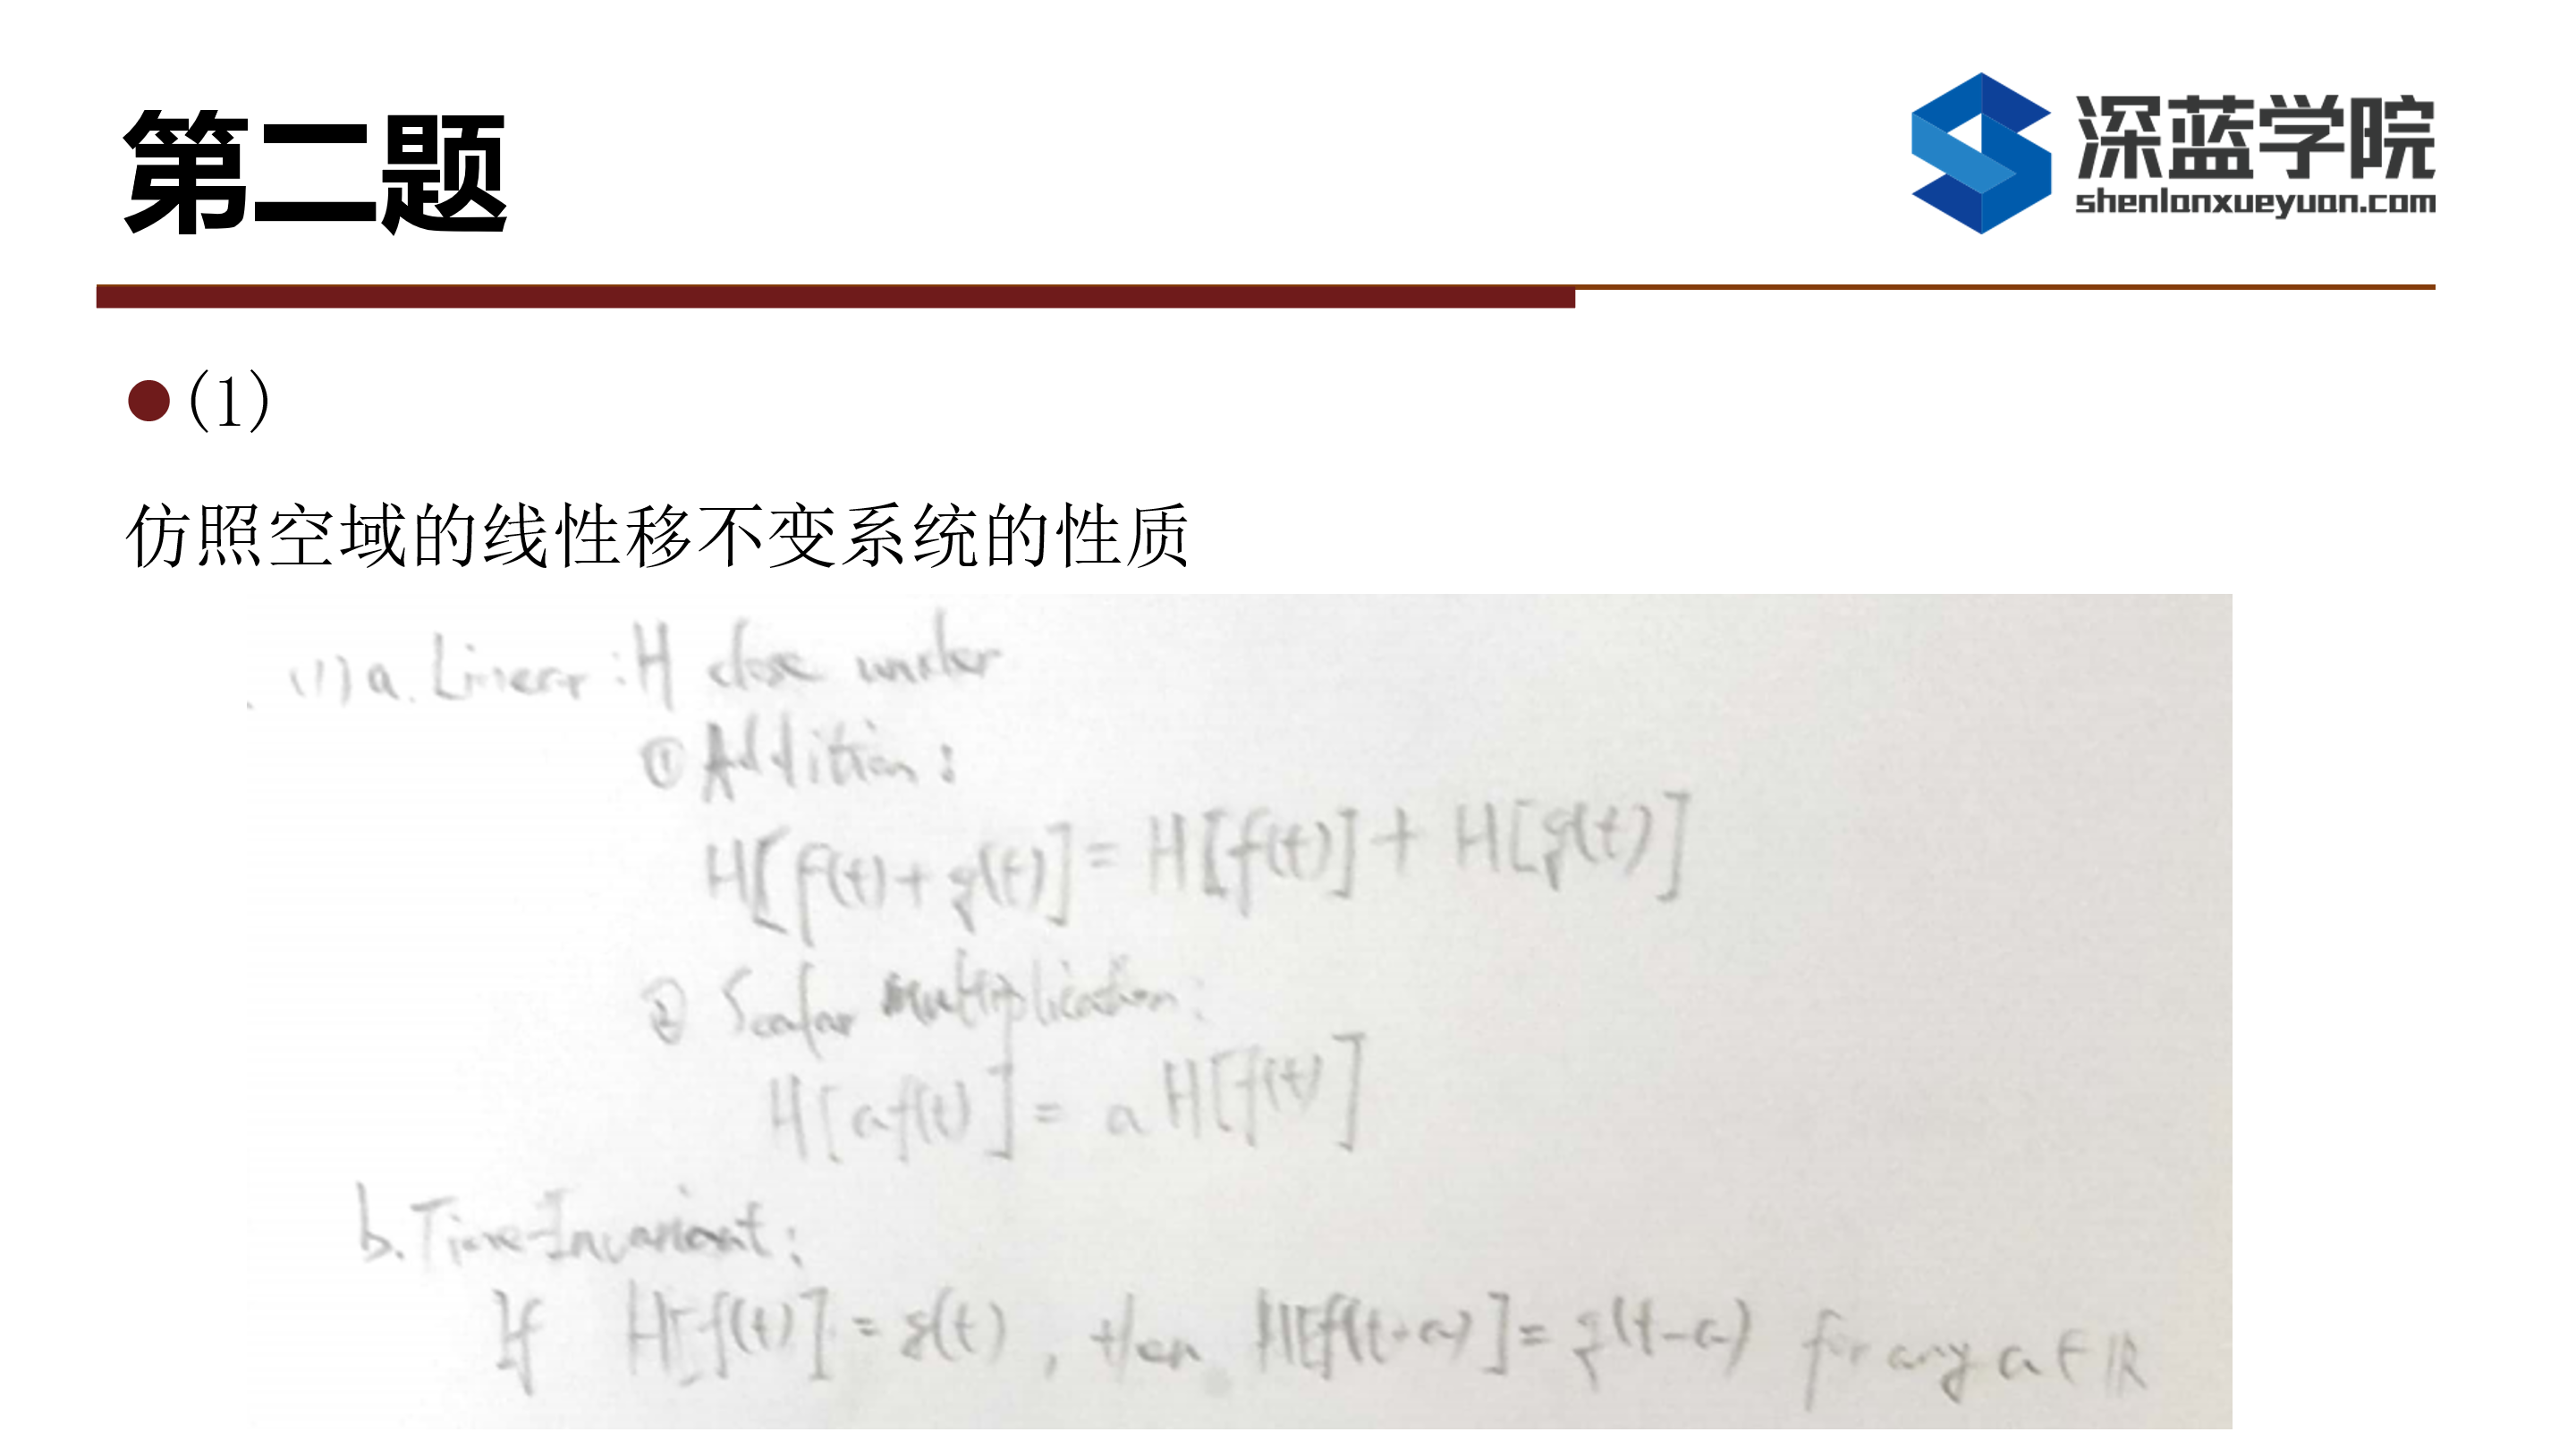 第二题
深蓝学院
shenlanxueyuan.com
(1)
仿照空域的线性移不变系统的性质
(1) a. Linear: H close under
① Addition:
H[f(t)+g(t)] = H[f(t)] + H[g(t)]
② Scalar multiplication:
H[af(t)] = a H[f(t)]
b. Time-Invariant:
If H[f(t)] = g(t), then H[f(t-a)] = g(t-a) for any a ∈ ℝ